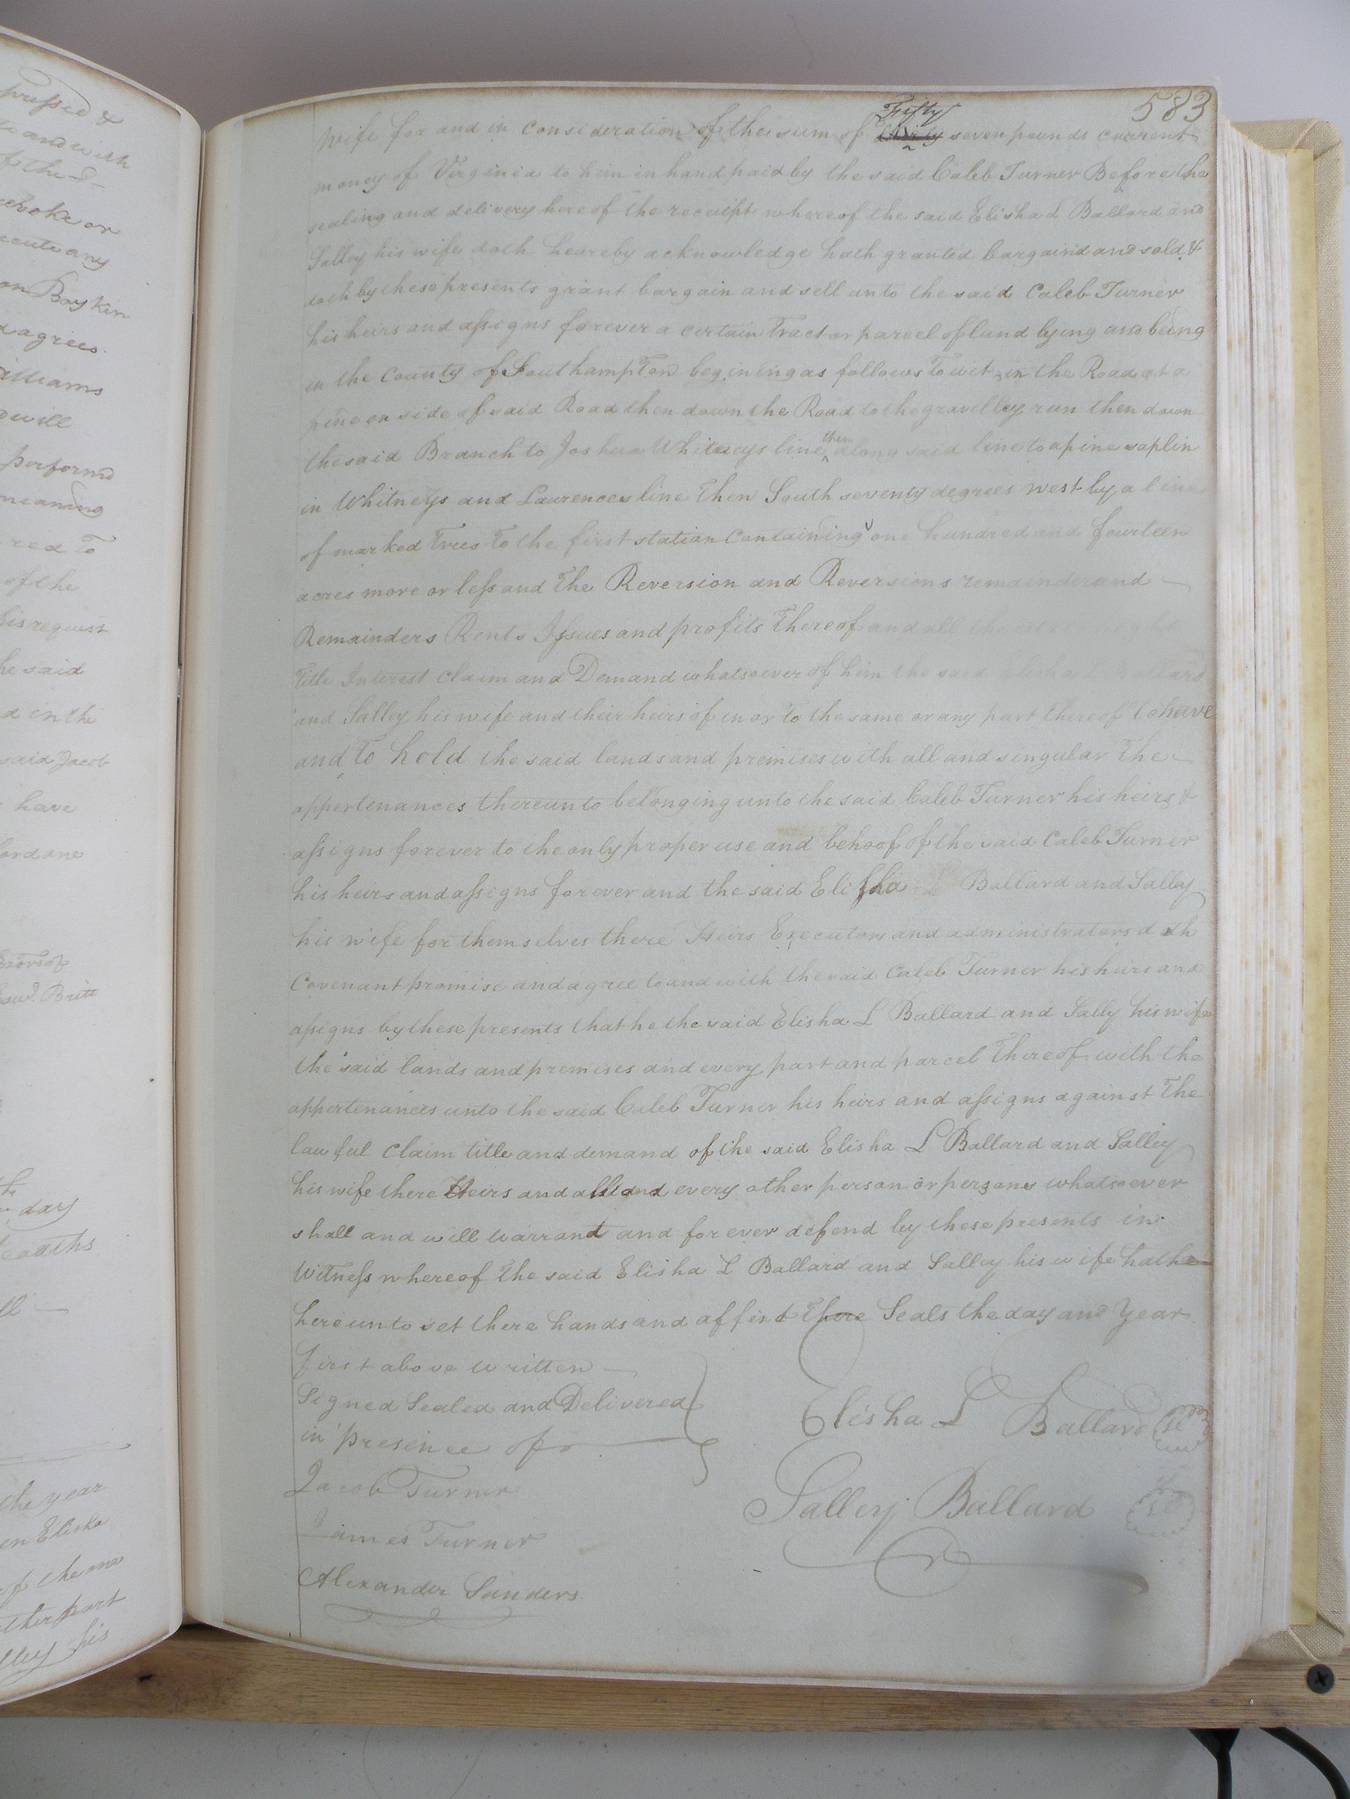 583
wife for and in Consideration of the sum of Fifty seven pounds current
money of Virginia to him in hand paid by the said Caleb Turner Before the
sealing and delivery here of the receipt whereof the said Elisha L Ballard and
Salley his wife doth heareby acknowledge hath granted bargaind and sold &
doth by these presents grant bargain and sell unto the said Caleb Turner
his heirs and assigns forever a certain Tract or parcel of land lying and being
in the County of Southampton begining as follows To wit, in the Road at a
pine on side of said Road then down the Road to the gravelley run then down
the said Branch to Joshua Whitneys line then along said line to a pine saplin
in Whitneys and Laurences line then South seventy degrees west by a line
of marked trees to the first station Containing one hundred and fourteen
acres more or less and the Reversion and Reversions remainder and
Remainders Rents Issues and profits thereof and all the estate right
Title Interest Claim and Demand whatsoever of him the said Elisha L Ballard
and Salley his wife and their heirs of in or to the same or any part thereof to have
and to hold the said lands and premises with all and singular the
appertenances thereunto belonging unto the said Caleb Turner his heirs &
assigns forever to the only proper use and behoof of the said Caleb Turner
his heirs and assigns forever and the said Elisha L Ballard and Salley
his wife for themselves there Heirs Executors and administrators doth
Covenant promise and agree to and with the said Caleb Turner his heirs and
asigns by these presents that he the said Elisha L Ballard and Sally his wife
the said lands and premises and every part and parcel thereof with the
appertenances unto the said Caleb Turner his heirs and assigns against the
lawful Claim title and demand of the said Elisha L Ballard and Salley
his wife there Heirs and all and every other person or persons whatsoever
shall and will warrant and forever defend by these presents in
Witness whereof the said Elisha L Ballard and Salley his wife hathe
hereunto set there hands and affixt there Seals the day and Year
first above written
Signed Sealed and Delivered
in presence of
Elisha L Ballard
Jacob Turner
Salley Ballard
James Turner
Alexander Sanders